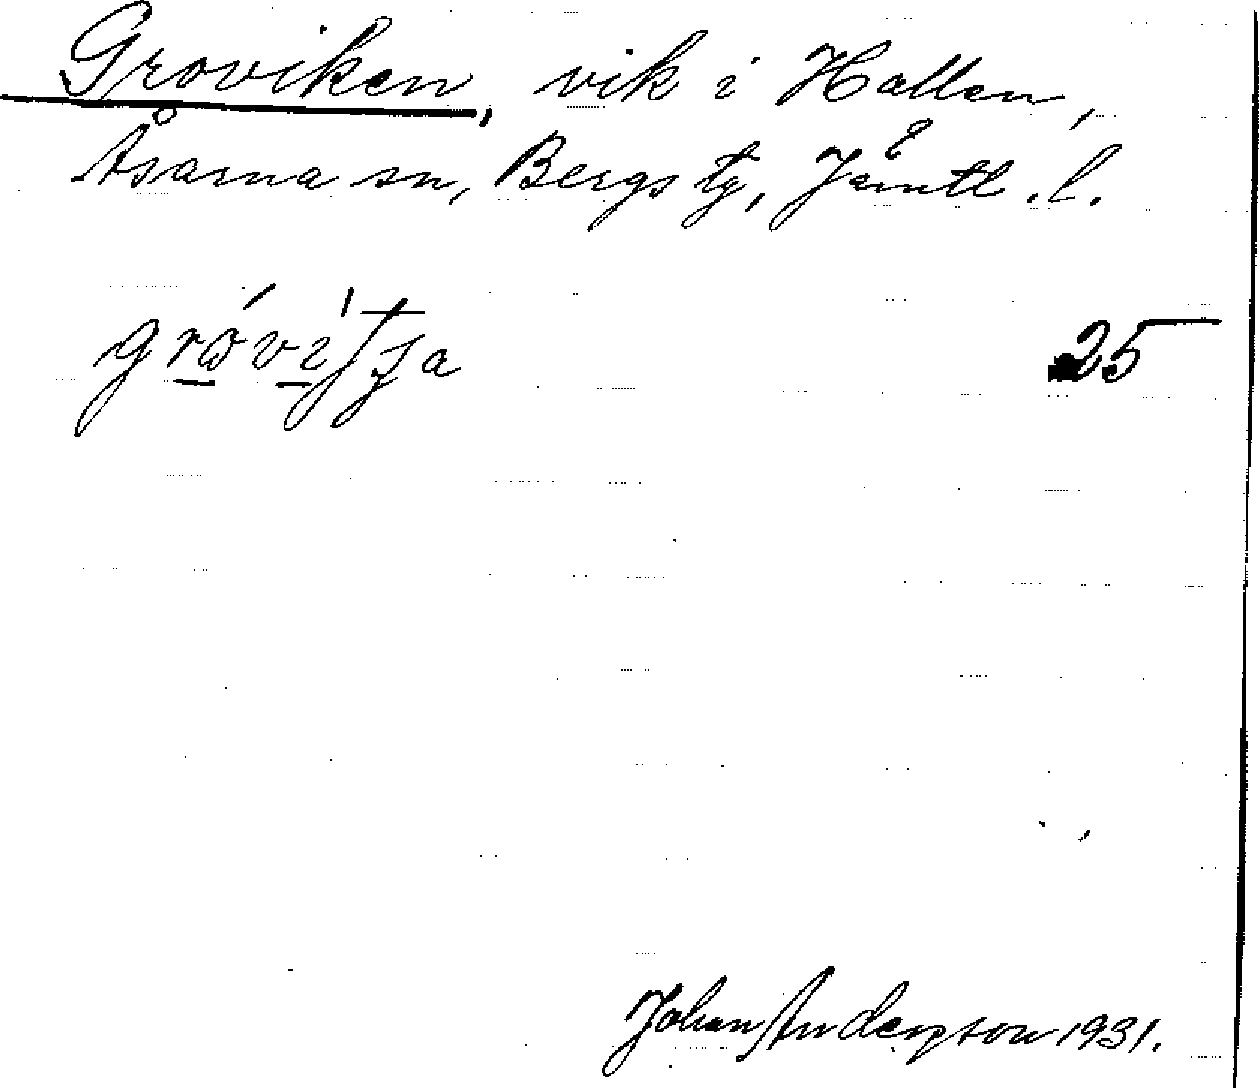 Groviken, vik i Hallen,
Åsarna sn, Bergs tg, Jämtl. l.
25
Johan Anderson 1931.